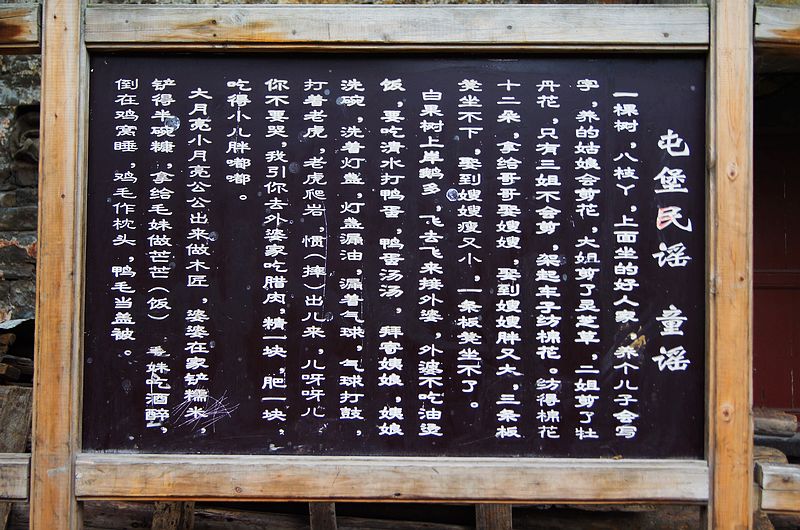 屯堡民谣 童谣
一棵树，八枝丫，上面坐的好人家，养个儿子会写
字，养的姑娘会剪花，大姐剪了灵芝草，二姐剪了牡
丹花，只有三姐不会剪，架起车子纺棉花。纺得棉花
十二朵，拿给哥哥娶嫂嫂，娶到嫂嫂胖又大，三条板
凳坐不下，娶到嫂嫂瘦又小，一条板凳坐不了。
白果树上岸鹅多，飞去飞来接外婆，外婆不吃油烫
饭，要吃清水打鸭蛋，鸭蛋汤汤，拜寄姨娘，姨娘
洗碗，洗着灯盏，灯盏漏油，漏着气球，气球打鼓，
打着老虎，老虎爬岩，惯（摔）出儿来，儿呀呀儿
你不要哭，我引你去外婆家吃腊肉，精一块，肥一块，
吃得小儿胖嘟嘟。
大月亮小月亮公公出来做木匠，婆婆在家铲糯米，
铲得半碗糠，拿给毛妹做芒芒（饭）毛妹吃酒醉，
倒在鸡窝睡，鸡毛作枕头，鸭毛当盖被。